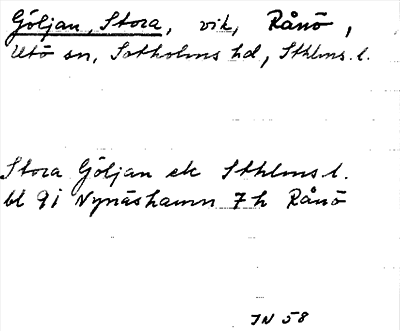 Göljan, Stora, vik, Rånö,
Utö sn, Sotholms hd, Sthlms l.
Stora Göljan ek Sthlms l.
bl 9i Nynäshamn 7h Rånö
IN 58